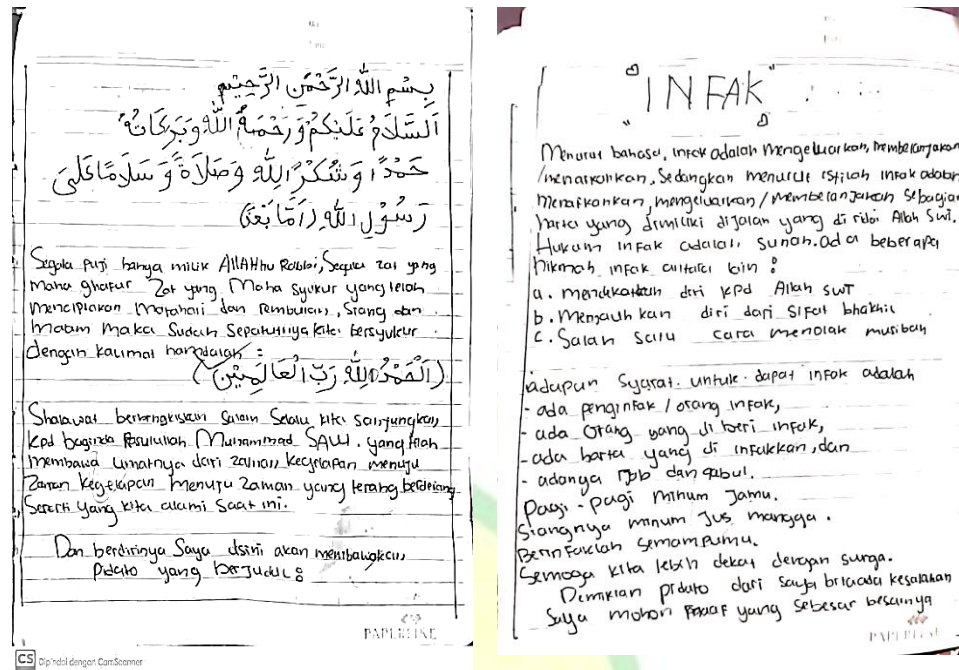 بِسْمِ اللهِ الرَّحْمَنِ الرَّحِيْمِ
اَلسَّلَامُ عَلَيْكُمْ وَرَحْمَةُ اللهِ وَبَرَكَاتُهُ
حَمْدًا وَشُكْرًا لِلهِ وَصَلَاةً وَسَلَامًا عَلَى
رَسُوْلِ اللهِ (اَمَّا بَعْدُ)
Segala puji hanya milik ALLAHhu Robbi, Segala zat yang
maha ghafur Zat yang Maha syukur yang telah
menciptakan Matahari dan Rembulan, Siang dan
malam Maka Sudah Sepatutnya kita bersyukur
dengan kalimat hamdalah :
(اَلْحَمْدُ لِلهِ رَبِّ الْعَالَمِيْنَ)
Shalawat beriringkan Salam Selalu kita sanjungkan,
kpd baginda Rasulullah Muhammad SAW. yang telah
membawa umatnya dari zaman kegelapan menuju
Zaman kegelapan menuju zaman yang terang berderang
Seperti yang kita alami Saat ini.
Dan berdirinya Saya disini akan membawakan,
Pidato yang berjudul :
PAPERLINE
CS Dipindai dengan CamScanner
"INFAK"
Menurut bahasa, infak adalah Mengeluarkan, Membelanjakan
/menafkahkan, Sedangkan menurut istilah infak adalah
Menafkahkan, mengeluarkan / Membelanjakan Sebagian
harta yang dimiliki dijalan yang di ridoi Allah Swt.
Hukum infak adalah sunah. ada beberapa
hikmah infak antara lain :
a. mendekatkan diri kpd Allah SWT
b. Menjauhkan diri dari Sifat bhakhil
c. Salah satu cara menolak musibah
adapun Syarat untuk dapat infak adalah
- ada penginfak / orang infak,
- ada orang yang di beri infak,
- ada harta yang di infakkan, dan
- adanya ijab dan qabul.
Pagi - pagi minum Jamu.
Siangnya minum Jus mangga.
Berinfaklah Semampumu.
Semoga kita lebih dekat dengan surga.
Demikian pidato dari saya bilaada kesalahan
Saya mohon maaf yang sebesar besarnya
PAPERLINE